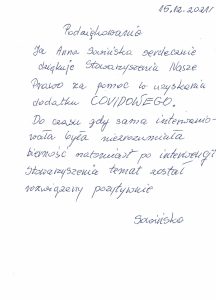 15.12.2021r
Podziękowania
Ja Anna Sosińska serdecznie
dziękuje Stowarzyszenia Nasze
Prawo za pomoc w uzyskania
dodatku COVIDOWEGO.
Do czasu gdy sama interwenio-
wała była niezrozumiała
bierność natomiast po interwencji
Stowarzyszenia temat został
rozwiązany pozytywnie
Sosińska